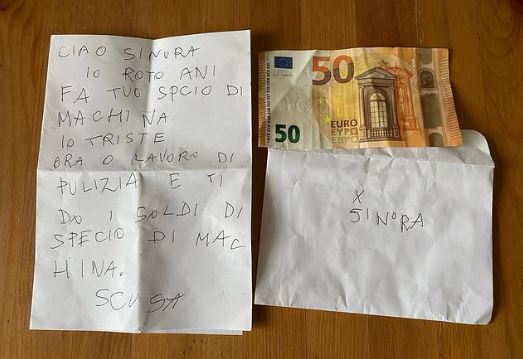 CIAO SINORA
IO ROTO ANI
FA TUO SPCIO DI
MACHINA.
IO TRISTE
ORA O LAVORO DI
PULIZIA E TI
DO I SOLDI DI
SPECIO DI MAC
HINA.
SCUSA
50
EURO
ΕΥΡΩ
ЕВРО
50
X
SINORA